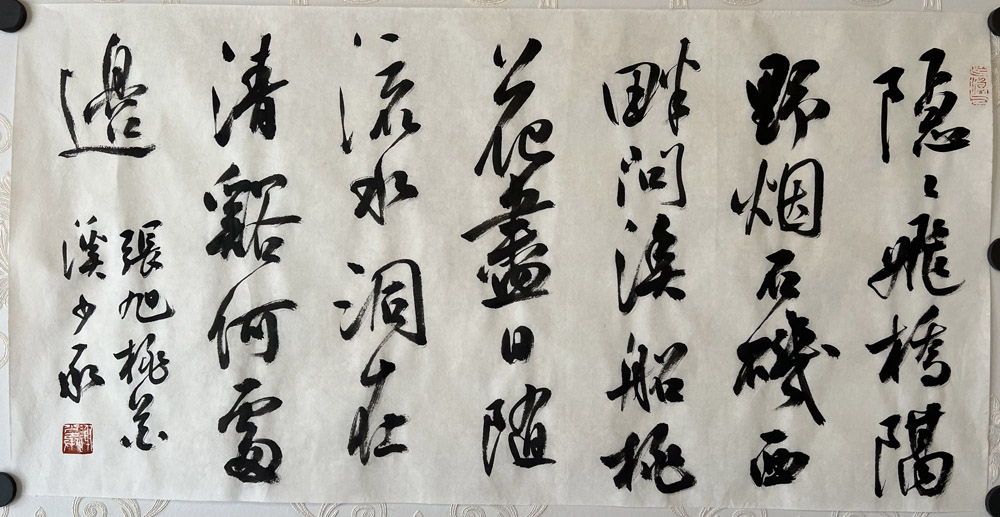 隱〻飛橋隔
野烟石磯西
畔问溪船桃
花盡日随
流水洞在
清谿何處
邊
張旭桃花
溪少承